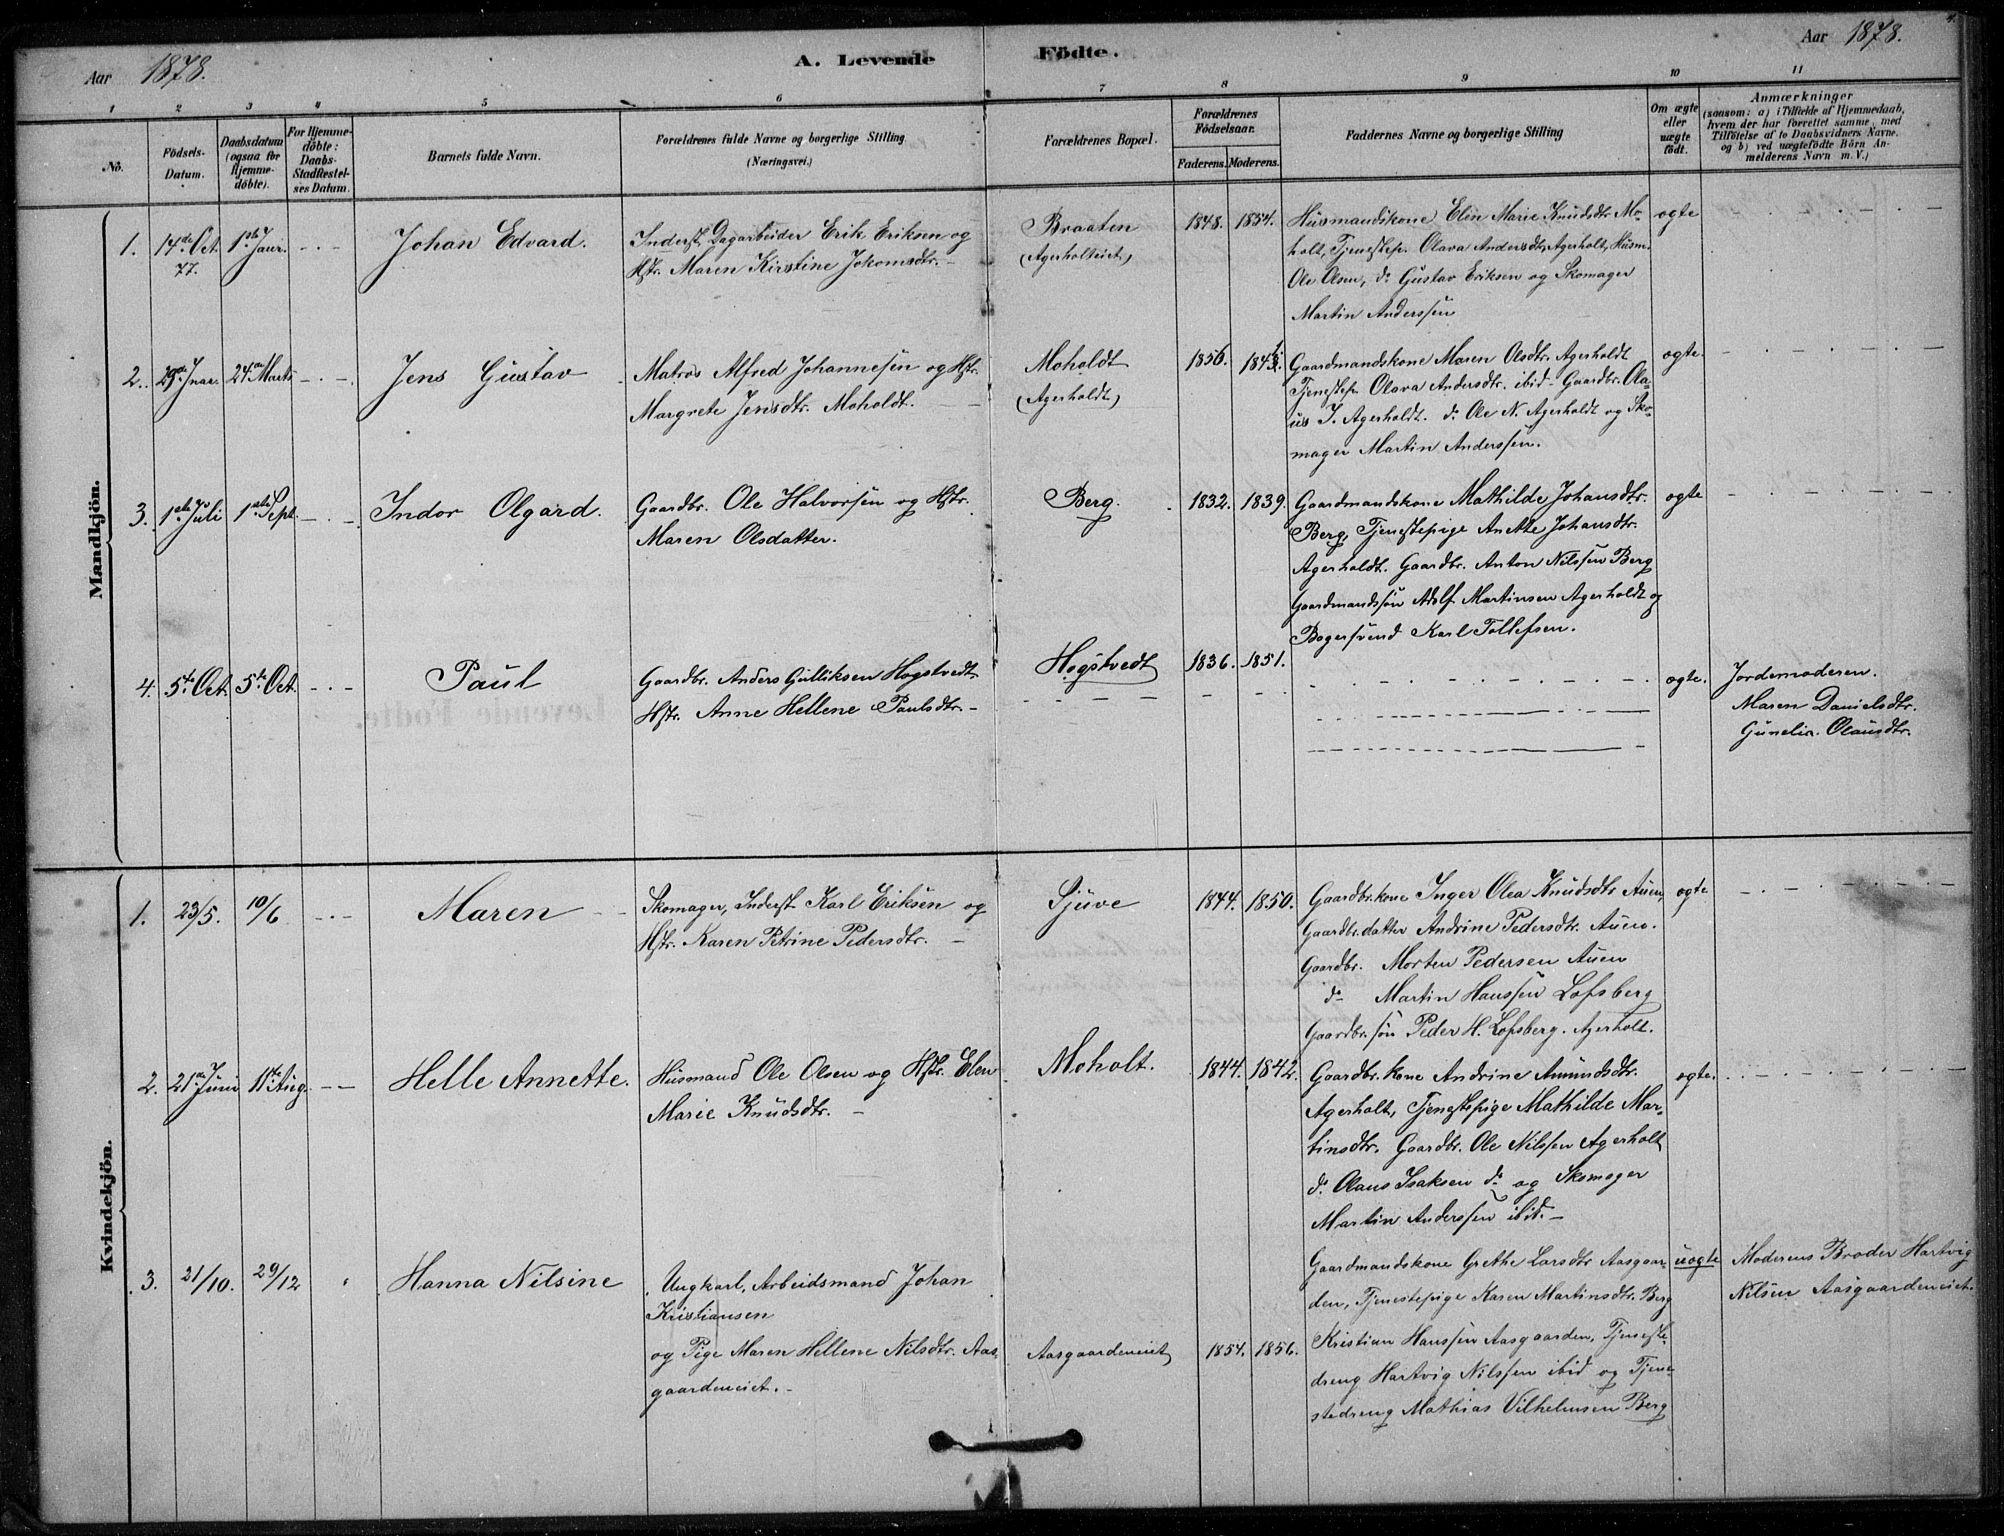 4.
Aar 1878.
A. Levende Födte.
Aar 1878.
1 2 3 4 5 6 7 8 9 10 11
No.
Födsels-
Datum.
Daabsdatum
(ogsaa for
Hjemme-
döbte).
For Hjemme-
döbte:
Daabs-
Stadfæstel-
ses Datum.
Barnets fulde Navn.
Forældrenes fulde Navne og borgerlige Stilling
(Næringsvei.)
Forældrenes Bopæl.
Forældrenes
Födselsaar.
Faderens. Moderens.
Faddernes Navne og borgerlige Stilling
Om ægte
eller
uægte
födt.
Anmærkninger
(saasom: a) i Tilfælde af Hjemmedaab,
hvem der har forrettet samme, med
Tilföielse af to Daabsvidners Navne.
og b) ved uægtefödte Börn An-
melderens Navn m. V.)
Mandkjön.
1. 14de Oct. 77. 1ste Janr. Johan Edvard.
Inderst, Dagarbeider Erik Eriksen og
Hstr. Maren Kirstine Jokomsdtr. -
Braaten
(Agerholteiet)
1848. 1854.
Husmandskone Elen Marie Knudsdtr. Mo-
holt, Tjenestep. Olava Andersdtr, Agerholt, Husm.
Ole Olsen, do Gustav Eriksen og Skomager
Martin Anderssen
ægte
2. 29de Jnar. 24de Marts Jens Gustav
Matros Alfred Johannesen og Hstr.
Margrete Jensdtr. Moholdt.
Moholdt
(Agerholdt)
1856. 184
Gaardmandskone Maren Olsdtr. Agerholdt
Tjenestep. Olava Andersdtr. ibid - Gaardbr. Ola-
us I. Agerholdt. do Ole N. Agerholdt og Sko-
mager Martin Anderssen.
ægte.
3. 1ste Juli 1ste Sept. Indor Olgard.
Gaardbr. Ole Halvorsen og Hstr.
Maren Olsdatter.
Berg.
1832. 1839.
Gaardmandskone Mathilde Johansdtr.
Berg, Tjenestepige Anette Johansdtr.
Agerholdt. Gaardbr. Anton Nilssen Berg
Gaardmandssön Adolf Martinsen Agerholdt og
Bagersvend Karl Tollefsen.
ægte
4. 5te Oct. 5te Oct. Paul
Gaardbr. Anders Gulliksen Hogstvedt
Hstr. Anne Hellene Paulsdtr. -
Hogstvedt
1836. 1851.
ægte.
Jordemoderen.
Maren Danielsdtr.
Gunelia Olausdtr.
Kvindekjön.
1. 23/5. 10/6 Maren
Skomager, Inderst Karl Eriksen og
Hstr. Karen Petrine Pedersdtr. -
Sjuve
1844. 1850.
Gaardbr.kone Inger Olea Knudsdtr Auen,
Gaardbr.datter Andrine Pedersdtr. Auen.
Gaardbr. Morten Pedersen Auen
do Martin Hanssen Lofsberg
Gaardbr.sön Peder H. Lofsberg. Agerholt.
ægte
2. 21de Juni 11te Aug. Helle Annette.
Husmand Ole Olsen og Hstr. Elen
Marie Knudsdtr. -
Moholt.
1844. 1842.
Gaardbr.kone Andrine Amundsdtr.
Agerholt, Tjenestepige Mathilde Mar-
tinsdtr. Gaardbr. Ole Nilssen Agerholt
do. Olaus Isaksen do og Skomager
Martin Anderssen ibid. -
ægte.
3. 21/10. 29/12 Hanna Nilsine
Ungkarl, Arbeidsmand Johan
Kristiansen
og Pige Maren Hellene Nilsdtr. Aas-
gaardeneiet. -
Aasgaardeneiet
1854. 1856.
Gaardmandskone Grethe Larsdtr Aasgaar-
den, Tjenestepige Karen Martinsdtr. Berg
Kristian Hanssen Aasgaarden, Tjeneste-
dreng Hartvig Nilssen ibid og Tjene-
stedreng Mathias Vilhelmsen Berg
uægte
Moderens Broder Hartvig
Nilsen Aasgaardeneiet.